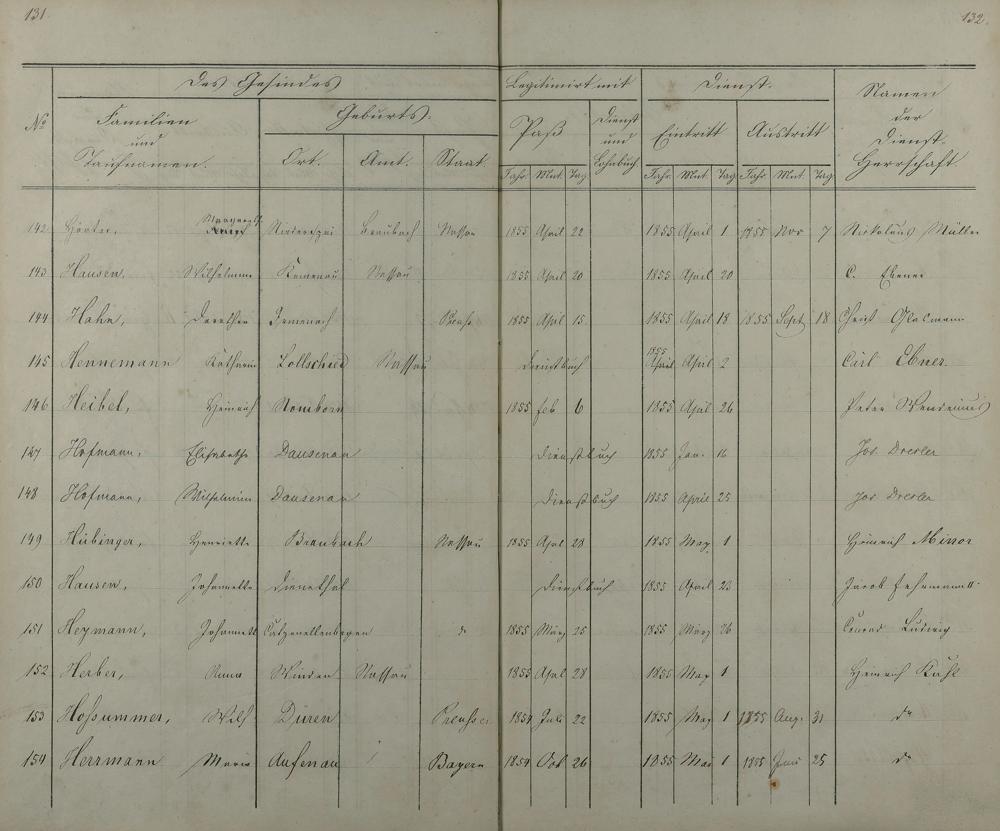 131.
132.
Des Gesindes
Legitimirt mit
Dienst.
Namen der Dienst-Herrschaft
No
Familien und Taufnamen.
Geburts-
Paß
Dienst und Lohnbuch
Eintritt
Austritt
Ort. Amt. Staat.
Jahr. Mnt. Tag
Jahr. Mnt. Tag Jahr. Mnt. Tag
142 Braubach Nassau 1855 April 22 1855 April 1 1855 Nov 7 Nickolaus Müller
143 Hausen, Wilhelmine Kemenau Nassau 1855 April 20 1855 April 20 C. Ebener
144 Hahn, Dorothea 1855 April 15 1855 April 18 1855 Sept 18 Christ
145 Hennemann Katharina Lollschied Nassau Dienstbuch 1855 April April 2 Carl Ebner.
146 Heibel, Heinrich Nomborn 1855 feb 6 1855 April 26 Peter
147 Hofmann, Elisabethe Dausenau Dienstbuch 1855 Jan. 16 Jos. Dresler
148 Hofmann, Wilhelmine Dausenau Dienstbuch 1855 April 25 Jos Dresler
149 Hübinger, Henriette Braubach Nassau 1855 Aprl 28 1855 May 1 Heinrich Minor
150 Hausen, Johannette Dienethal Dienstbuch 1855 April 23 Jacob II.
151 Heymann, Johannette Catzenellenbogen do 1855 März 25 1855 März 26 Conrad Ludwig
152 Herber, Anna Winden Nassau 1855 Aprl 28 1855 May 1 Heinrich Kuhl
153 Hossummer, Wilh Düren Preuhsen 1854 Juli 22 1855 May 1 1855 Aug. 31 do
154 Herrmann Maria Aufenau Bayern 1854 Oct 26 1855 Mai 1 1855 Juni 25 do